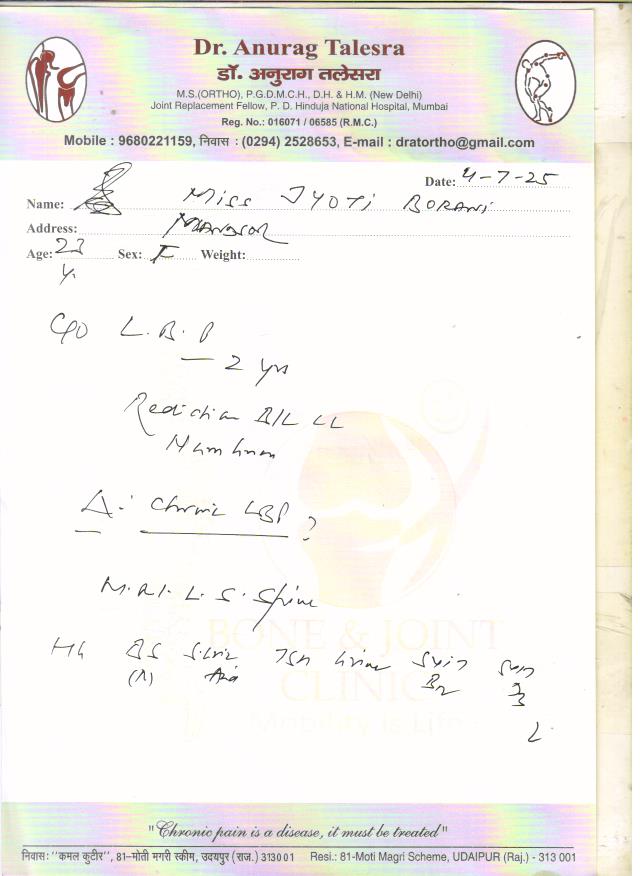 Dr. Anurag Talesra
डॉ. अनुराग तलेसरा
M.S.(ORTHO), P.G.D.M.C.H., D.H. & H.M. (New Delhi)
Joint Replacement Fellow, P. D. Hinduja National Hospital, Mumbai
Reg. No.: 016071 / 06585 (R.M.C.)
Mobile : 9680221159, निवास : (0294) 2528653, E-mail : dratortho@gmail.com
Date: 4-7-25
Name: Miss Jyoti Borani
Address:
Age: 23 Sex: F Weight:
yr
C/O L.B.P
— 2 yrs
B/L LL
Δ: Chronic LBP ?
M.R.I. L. S. Spine
BONE & JOINT
CLINIC
Mobility is Life
"Chronic pain is a disease, it must be treated"
निवास: "कमल कुटीर", 81-मोती मगरी स्कीम, उदयपुर (राज.) 313001 Resi.: 81-Moti Magri Scheme, UDAIPUR (Raj.) - 313 001